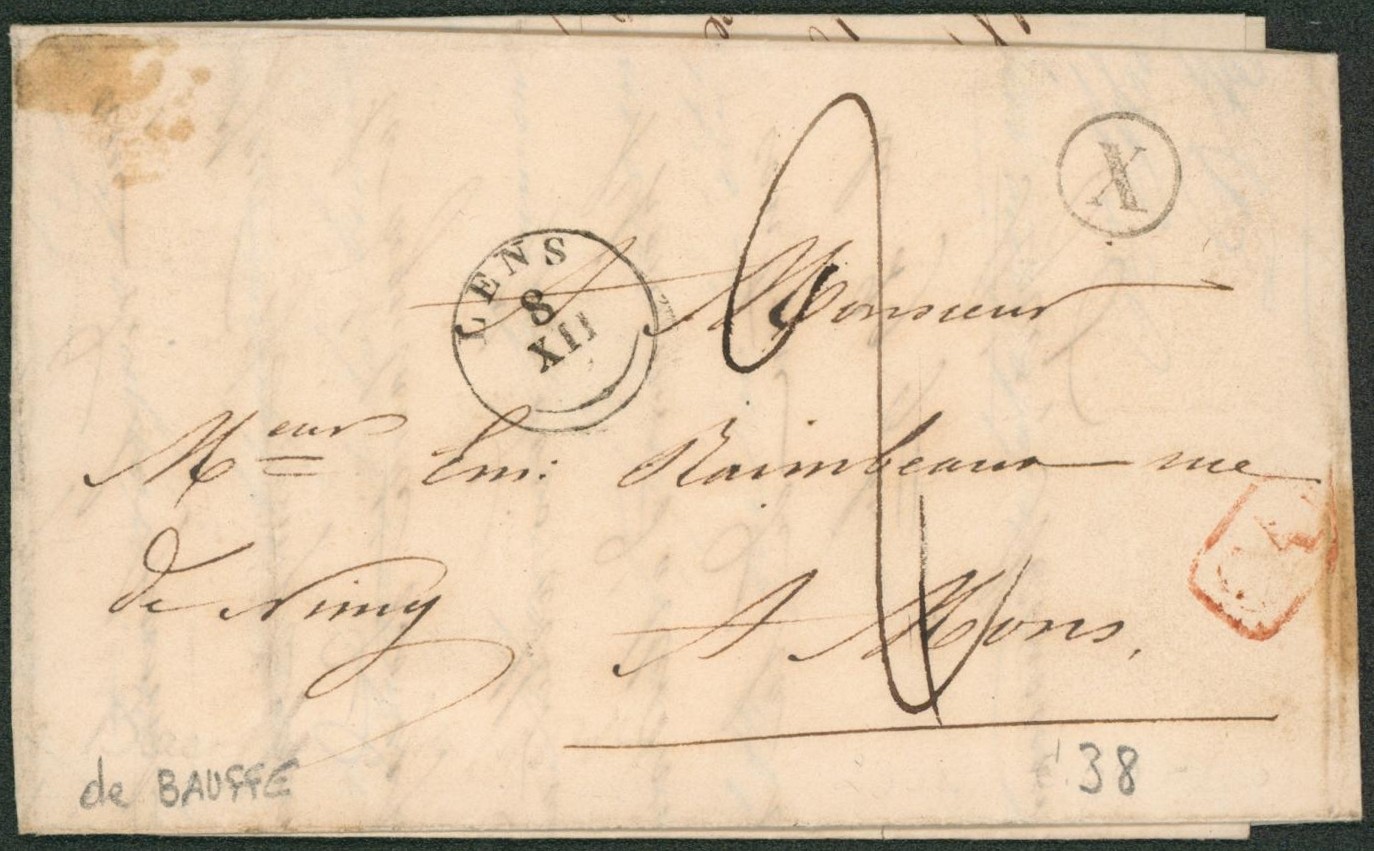 X
LENS
8
XII
2
A Monsieur
Meur Em: Raimbeaux rue
de Nimy
A Mons,
de BAUFFE
38